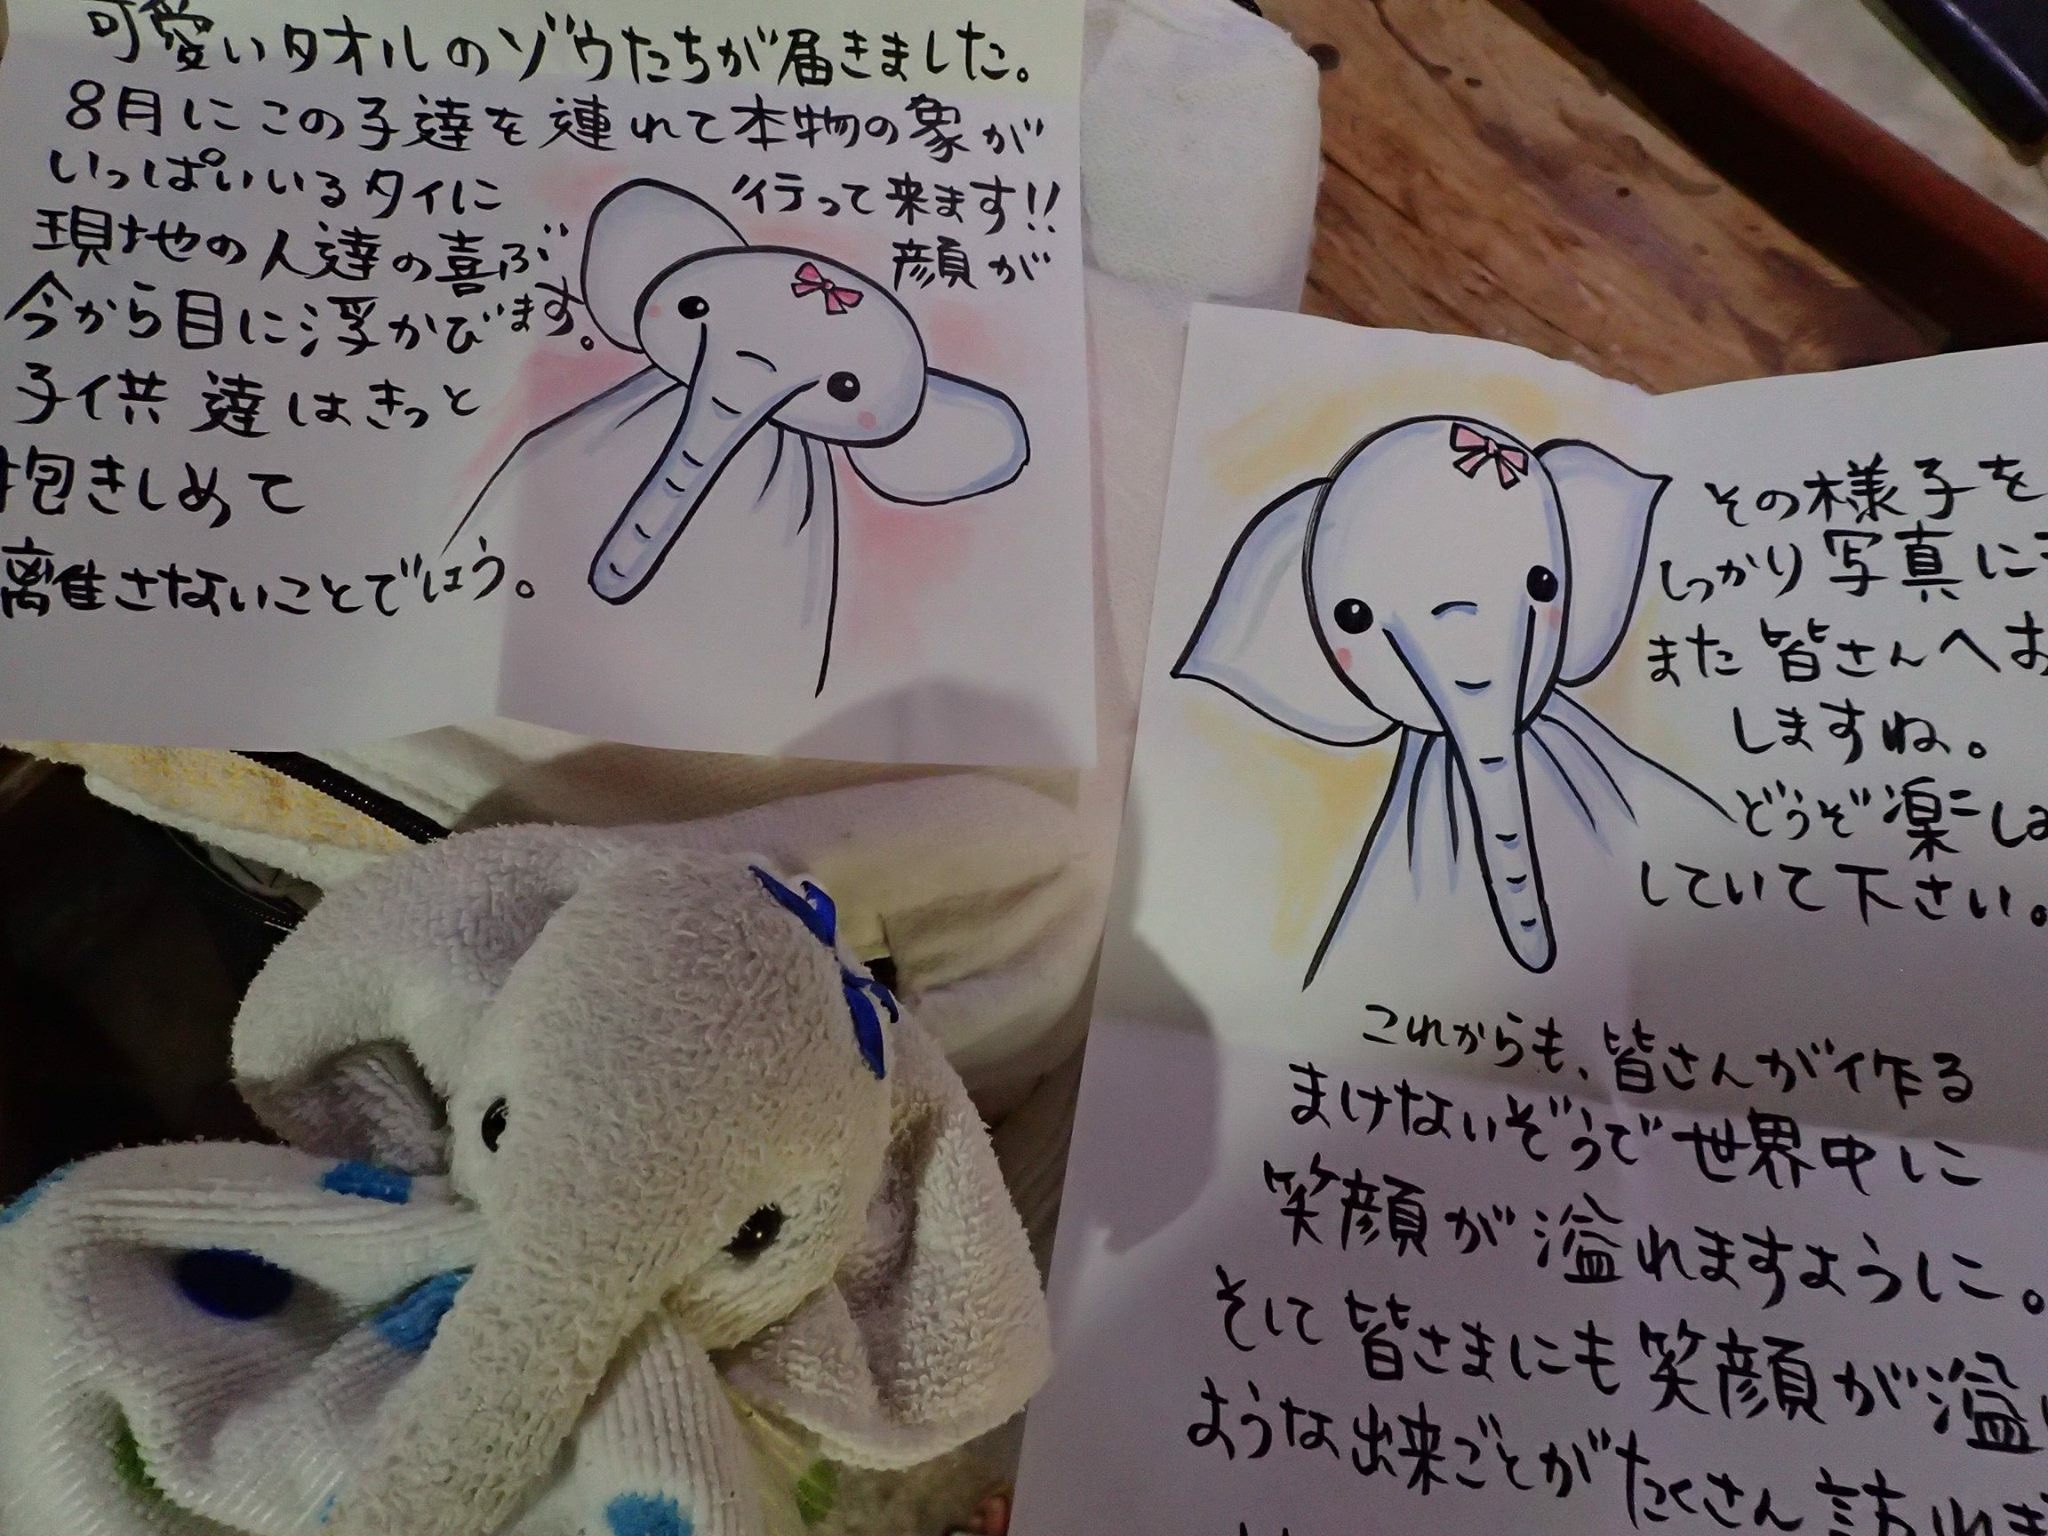 可愛いタオルのゾウたちが届きました。
8月にこの子達を連れて本物の象が
いっぱいいるタイに行って来ます!!
現地の人達の喜ぶ顔が
今から目に浮かびます。
子供達はきっと
抱きしめて
離さないことでしょう。
その様子を
しっかり写真に
また皆さんへお
しますね。
どうぞ楽しみ
していて下さい。
これからも、皆さんが作る
まけないぞうで世界中に
笑顔が溢れますように。
そして皆さまにも笑顔が溢れ
ような出来ごとがたくさん訪れ